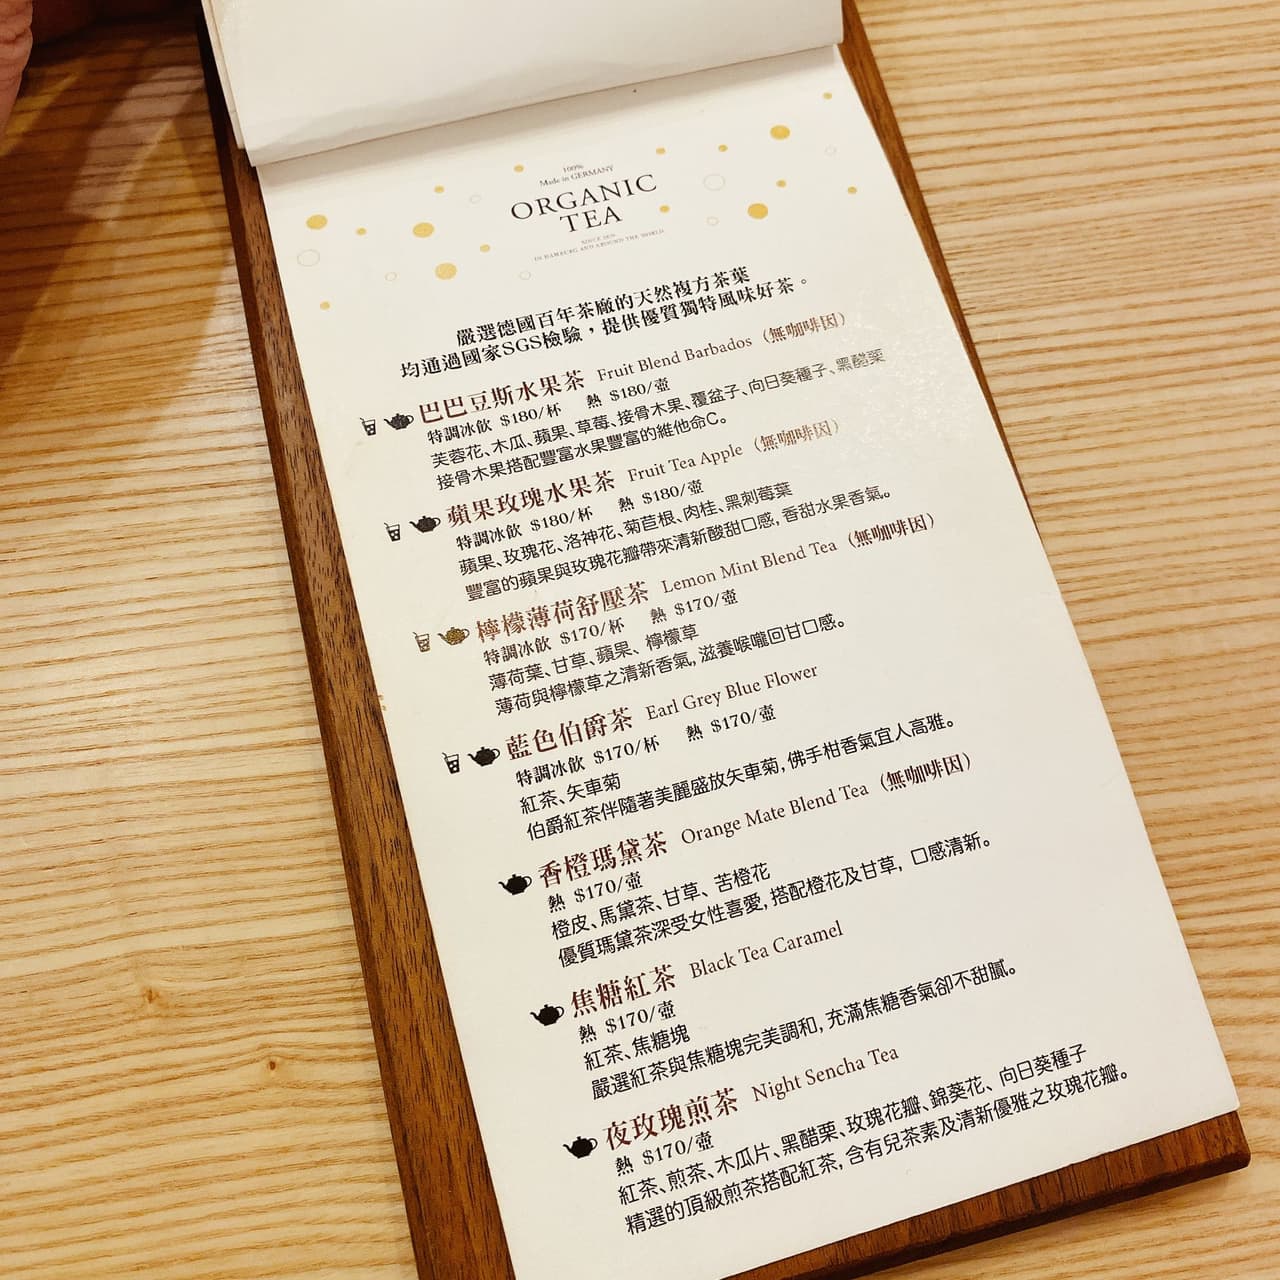 100%
Made in GERMANY
ORGANIC
TEA
SINCE 1879
IN HAMBURG AND AROUND THE WORLD
嚴選德國百年茶廠的天然複方茶葉
均通過國家SGS檢驗，提供優質獨特風味好茶。
巴巴豆斯水果茶 Fruit Blend Barbados（無咖啡因）
特調冰飲 $180/杯 熱 $180/壺
芙蓉花、木瓜、蘋果、草莓、接骨木果、覆盆子、向日葵種子、黑醋栗
接骨木果搭配豐富水果豐富的維他命C。
蘋果玫瑰水果茶 Fruit Tea Apple（無咖啡因）
特調冰飲 $180/杯 熱 $180/壺
蘋果、玫瑰花、洛神花、菊苣根、肉桂、黑刺莓葉
豐富的蘋果與玫瑰花瓣帶來清新酸甜口感，香甜水果香氣。
檸檬薄荷舒壓茶 Lemon Mint Blend Tea（無咖啡因）
特調冰飲 $170/杯 熱 $170/壺
薄荷葉、甘草、蘋果、檸檬草
薄荷與檸檬草之清新香氣，滋養喉嚨回甘口感。
藍色伯爵茶 Earl Grey Blue Flower
特調冰飲 $170/杯 熱 $170/壺
紅茶、矢車菊
伯爵紅茶伴隨著美麗盛放矢車菊，佛手柑香氣宜人高雅。
香橙瑪黛茶 Orange Mate Blend Tea（無咖啡因）
熱 $170/壺
橙皮、馬黛茶、甘草、苦橙花
優質瑪黛茶深受女性喜愛，搭配橙花及甘草，口感清新。
焦糖紅茶 Black Tea Caramel
熱 $170/壺
紅茶、焦糖塊
嚴選紅茶與焦糖塊完美調和，充滿焦糖香氣卻不甜膩。
夜玫瑰煎茶 Night Sencha Tea
熱 $170/壺
紅茶、煎茶、木瓜片、黑醋栗、玫瑰花瓣、錦葵花、向日葵種子
精選的頂級煎茶搭配紅茶，含有兒茶素及清新優雅之玫瑰花瓣。